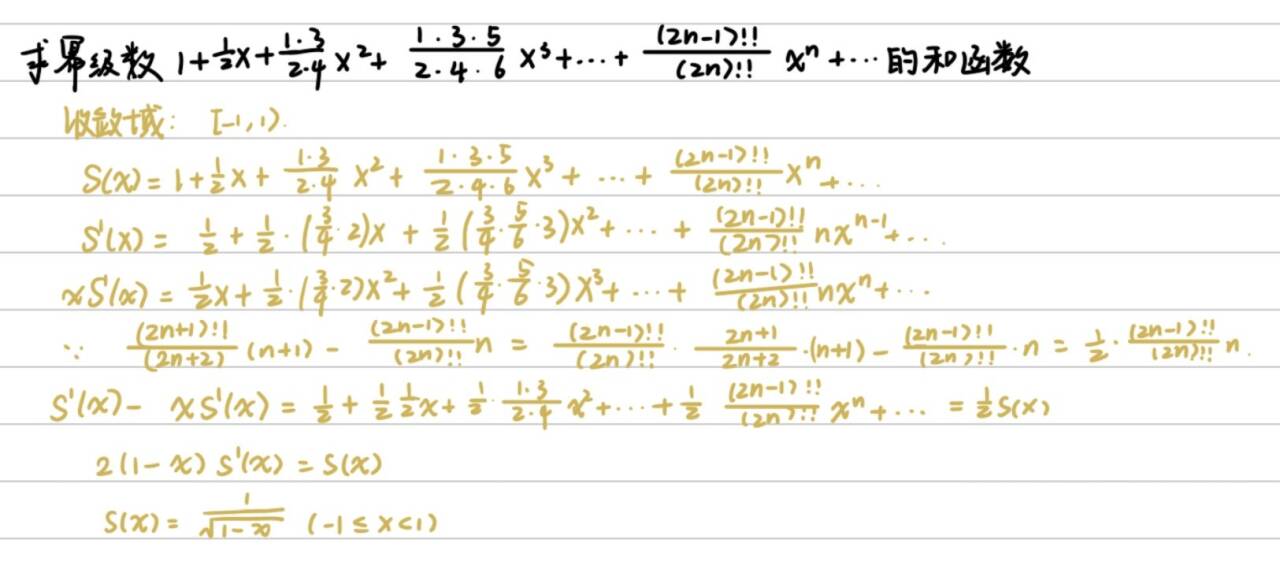 求幂级数 1+\frac{1}{2}x+\frac{1·3}{2·4}x^2+\frac{1·3·5}{2·4·6}x^3+…+\frac{(2n-1)!!}{(2n)!!}x^n+…的和函数
收敛域: [-1,1).
S(x)=1+\frac{1}{2}x+\frac{1·3}{2·4}x^2+\frac{1·3·5}{2·4·6}x^3+…+\frac{(2n-1)!!}{(2n)!!}x^n+…
S'(x)=\frac{1}{2}+\frac{1}{2}·(\frac{3}{4}·2)x+\frac{1}{2}(\frac{3}{4}·\frac{5}{6}·3)x^2+…+\frac{(2n-1)!!}{(2n)!!}nx^{n-1}+…
xS'(x)=\frac{1}{2}x+\frac{1}{2}·(\frac{3}{4}·2)x^2+\frac{1}{2}(\frac{3}{4}·\frac{5}{6}·3)x^3+…+\frac{(2n-1)!!}{(2n)!!}nx^n+…
∵ \frac{(2n+1)!!}{(2n+2)}(n+1)-\frac{(2n-1)!!}{(2n)!!}n=\frac{(2n-1)!!}{(2n)!!}·\frac{2n+1}{2n+2}·(n+1)-\frac{(2n-1)!!}{(2n)!!}·n=\frac{1}{2}·\frac{(2n-1)!!}{(2n)!!}n.
S'(x)-xS'(x)=\frac{1}{2}+\frac{1}{2}\frac{1}{2}x+\frac{1}{2}·\frac{1·3}{2·4}x^2+…+\frac{1}{2}\frac{(2n-1)!!}{(2n)!!}x^n+…=\frac{1}{2}S(x)
2(1-x)S'(x)=S(x)
S(x)=\frac{1}{\sqrt{1-x}} (-1≤x<1)